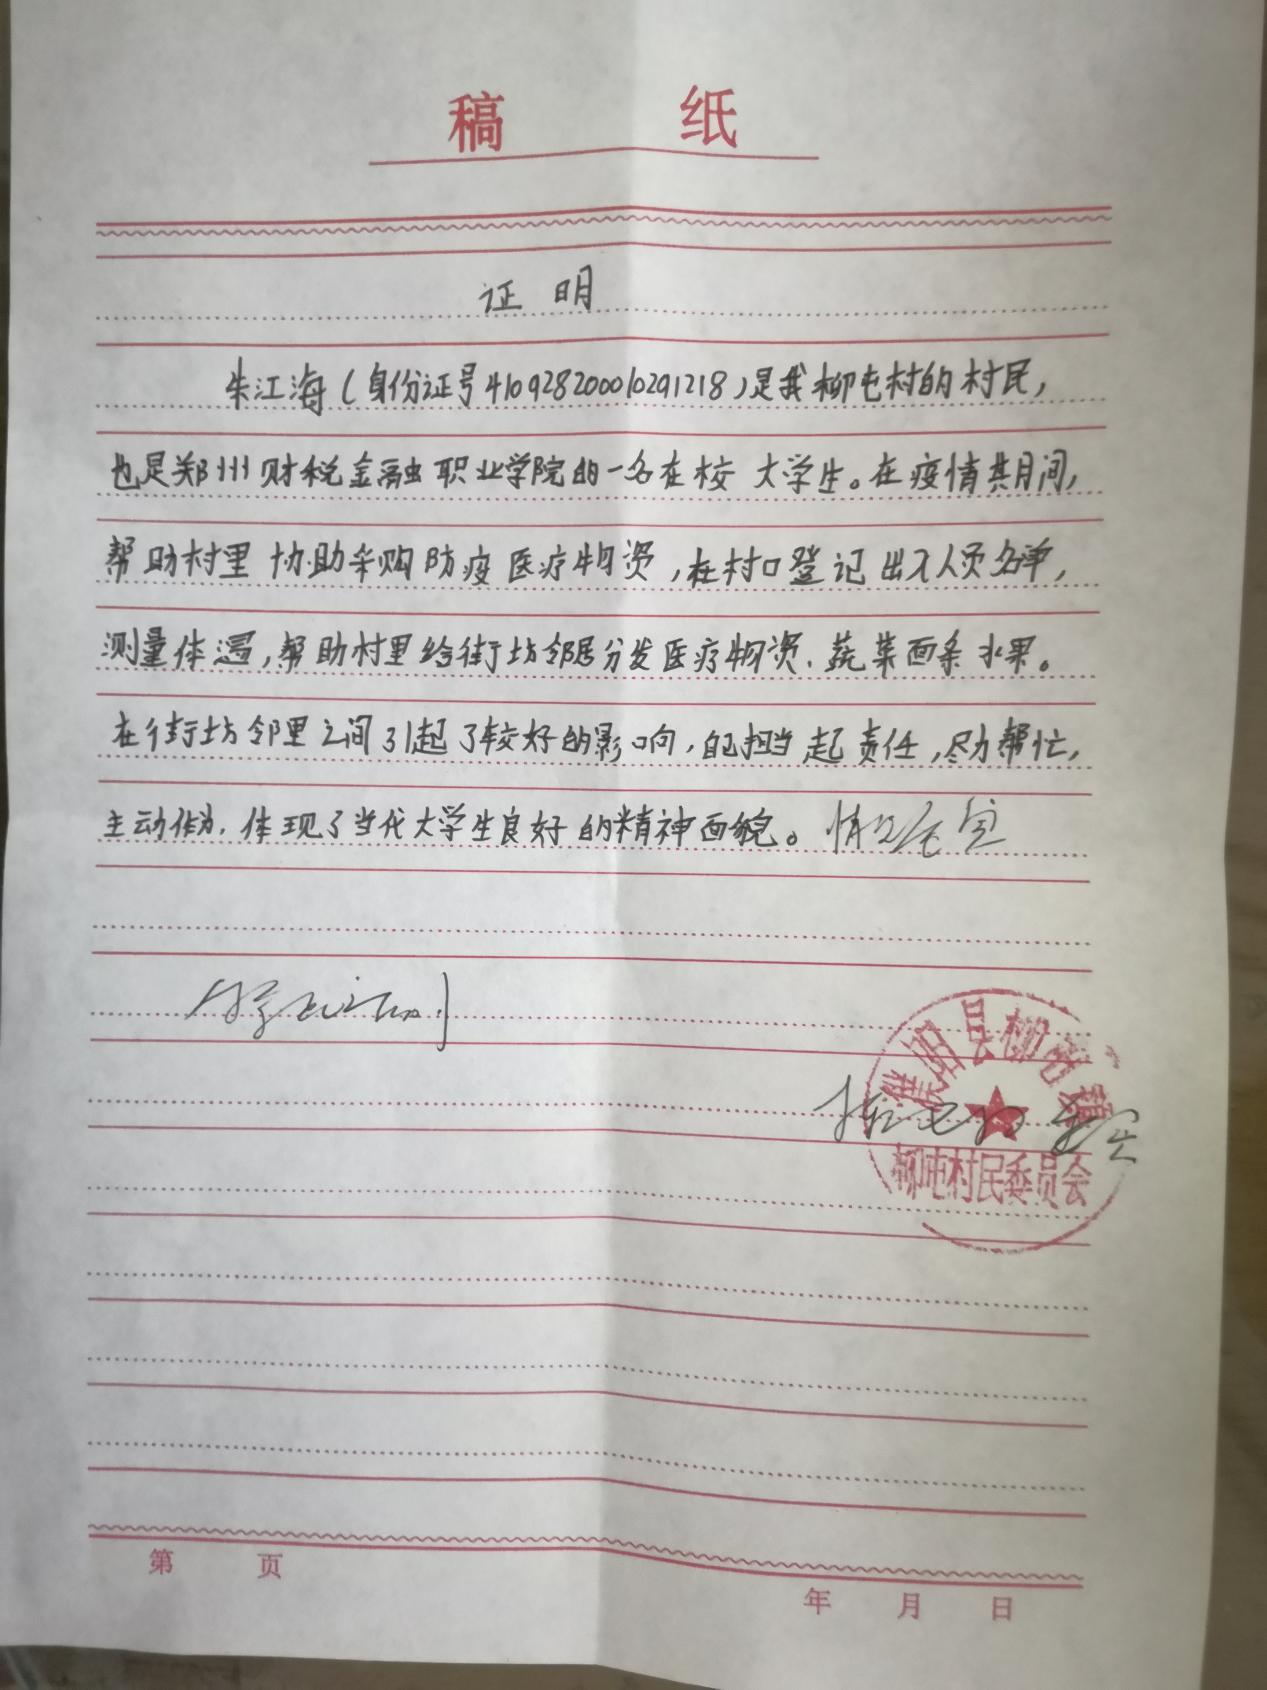 稿 纸
证 明
朱江海(身份证号410928200010291218)是我柳屯村的村民,
也是郑州财税金融职业学院的一名在校大学生。在疫情其月间,
帮助村里协助采购防疫医疗物资,在村口登记出入人员名单,
测量体温,帮助村里给街坊邻居分发医疗物资、蔬菜面条水果。
在街坊邻里之间引起了较好的影响,自己担当起责任,尽力帮忙,
主动作为,体现了当代大学生良好的精神面貌。情况属实
濮阳县柳屯镇
柳屯村民委员会
第 页
年 月 日